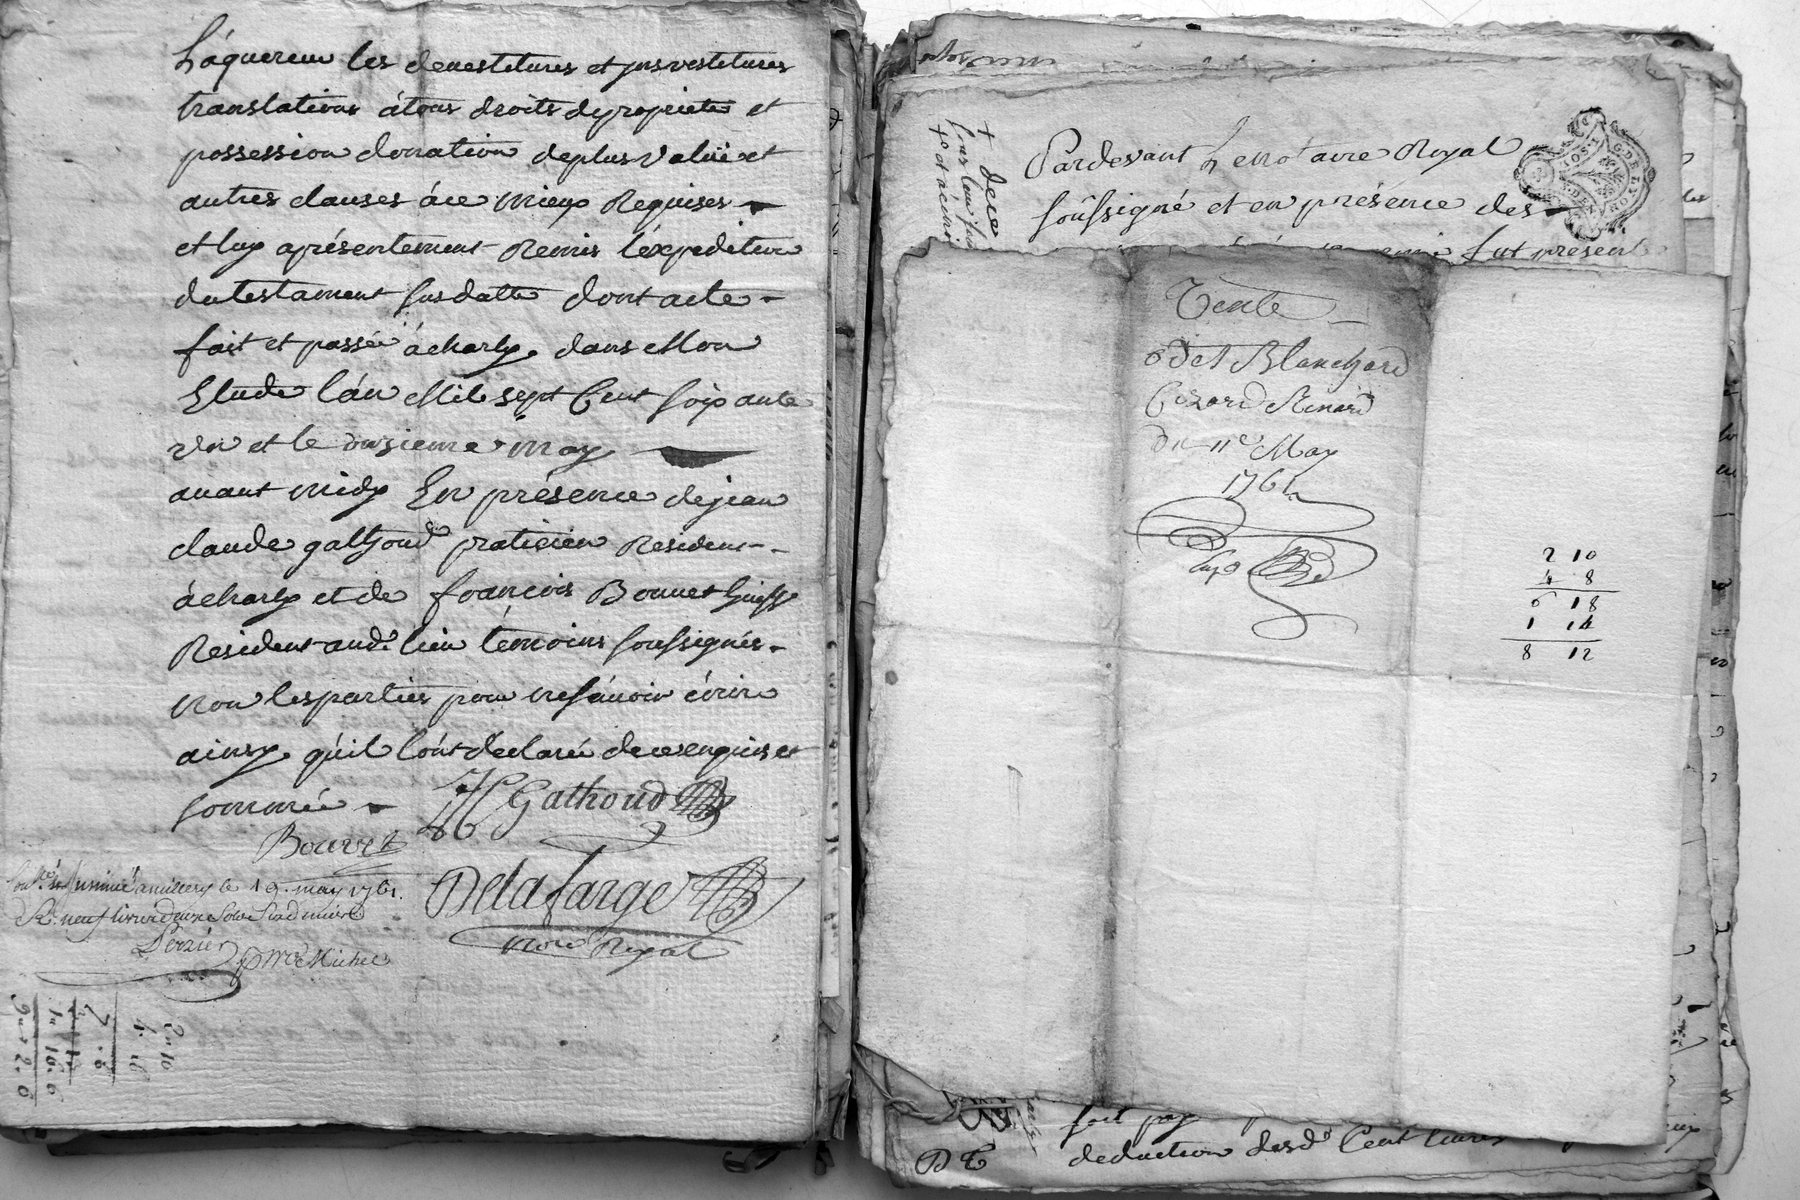 L'áquereur les devestitures et jnvestitures
translations átous droits dpropriete et
possession donation deplus value et
autres clauses áce mieux Requises
et luy aprésentement Remis l'éxpedition
dutestament susdatte dont acte
fait et passée ácharly dans Mon
Etude lán Mil sept Cent soixante
un et le onzieme may
avant midy En présence dejean
claude gathoud praticien Resident
ácharly et de francois Bonnet huissr
Resident aud. lieu témoins soussignés
non lesparties pour nesávoir écrire
ainsy qúil lónt declaré de ce enquis et
sommé
Gathoud
Bouvet
Delafarge
amillery le 19. may 1761.
Rt. neuf livres douze sols six deniers
Perrier
Michel
Nore Royal
2 " 10
4 . 16
9 " 2 . 6
+ de ce
Pardevant Le notaire Royal
soussigné et en présence des
fut present
Vente
odet Blanchard
Cizard Renard
du 11e May
1761
2 10
4 8
6 18
1 14
8 12
fait pay
deduction desd. Cent livres